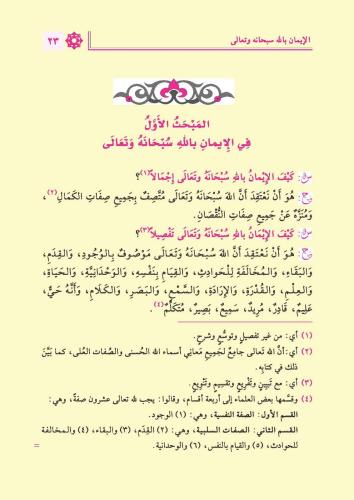 الإيمان بالله سبحانه وتعالى
٢٣
المَبْحَثُ الأَوَّلُ
فِي الإِيمانِ بِاللهِ سُبْحَانَهُ وَتَعَالَى
س: كَيْفَ الإِيْمَانُ بِاللهِ سُبْحَانَهُ وَتَعَالَى إِجْمَالاً(١)؟
ج: هُوَ أَنْ نَعْتَقِدَ أَنَّ اللهَ سُبْحَانَهُ وَتَعَالَى مُتَّصِفٌ بِجَمِيعِ صِفَاتِ الكَمَالِ(٢)،
وَمُنَزَّهٌ عَنْ جَمِيعِ صِفَاتِ النُّقْصَانِ.
س: كَيْفَ الإِيْمَانُ بِاللهِ سُبْحَانَهُ وَتَعَالَى تَفْصِيلاً(٣)؟
ج: هُوَ أَنْ نَعْتَقِدَ أَنَّ اللهَ سُبْحَانَهُ وَتَعَالَى مَوْصُوفٌ بِالوُجُودِ، وَالقِدَمِ،
وَالبَقَاءِ، وَالمُخَالَفَةِ لِلْحَوادِثِ، وَالقِيَامِ بِنَفْسِهِ، وَالوَحْدَانِيَّةِ، وَالحَيَاةِ،
وَالعِلْمِ، وَالقُدْرَةِ، وَالإِرَادَةِ، وَالسَّمْعِ، وَالبَصَرِ، وَالكَلَامِ، وَأَنَّهُ حَيٌّ،
عَلِيمٌ، قَادِرٌ، مُرِيدٌ، سَمِيعٌ، بَصِيرٌ، مُتَكَلِّمٌ(٤).
(١) أي: من غير تفصيلٍ وتوسُّعٍ وشرحٍ.
(٢) أي: أنَّ الله تعالى جامعٌ لجَميعِ مَعاني أسماء الله الحُسنى والصِّفات العُلى، كما بَيَّنَ
ذلك في كتابِه.
(٣) أي: مع تَبيينٍ وتَفْريعٍ وتقسيمٍ وتَنْويعٍ.
(٤) وقسَّمها بعض العلماء إلى أربعة أقسام، وقالوا: يجب لله تعالى عشرون صفةً، وهي:
القسم الأول: الصفة النفسية، وهي: (١) الوجود.
القسم الثاني: الصفات السلبية، وهي: (٢) القِدَم، (٣) والبقاء، (٤) والمخالفة
للحوادث، (٥) والقيام بالنفس، (٦) والوحدانية.
=